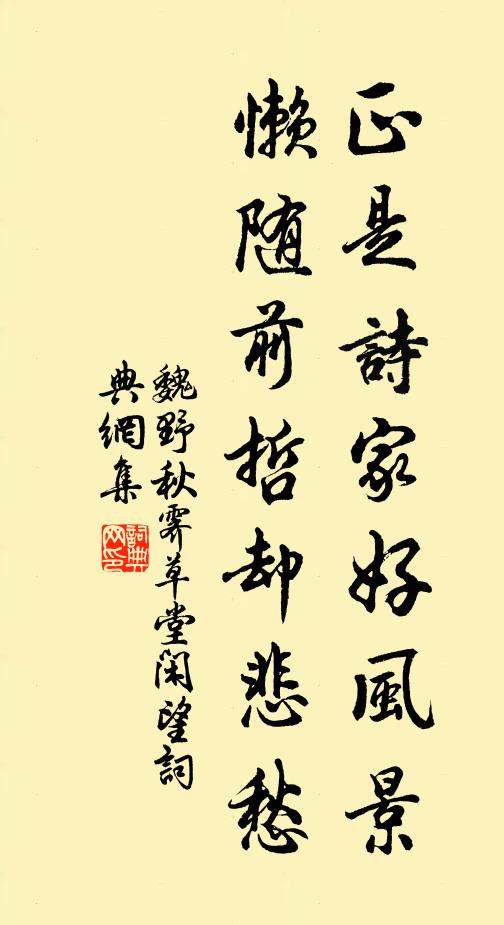 正是詩家好風景
懶随前哲却悲愁
魏野秋霽草堂閑望詞
典網集
詞典
网印